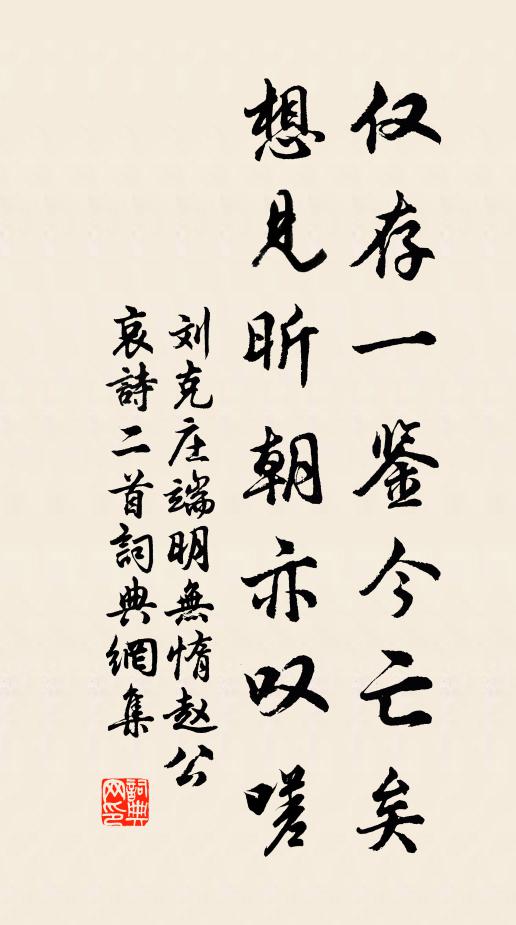 仅存一鉴今亡矣
想见昕朝亦叹嗟
刘克庄端明無惰赵公
哀詩二首詞典網集
詞典
网印